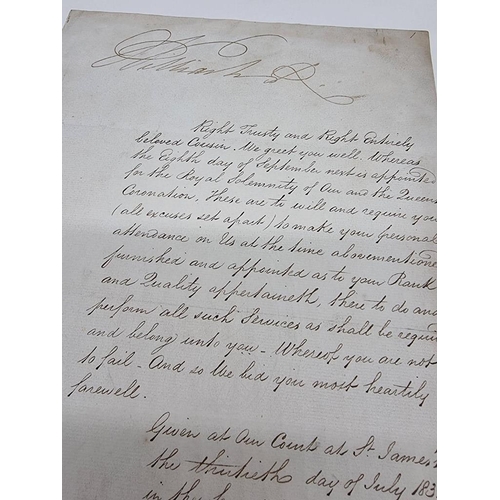 William R
Right Trusty and Right Entirely
beloved Cousin. We greet you well. Whereas
the Eighth day of September next is appointed
for the Royal Solemnity of Our and the Queens
Coronation. These are to will and require you
(all excuses set apart) to make your personal
attendance on Us at the time abovementioned
furnished and appointed as to your Rank
and Quality appertaineth, there to do and
perform all such Services as shall be requir
and belong unto you - Whereof you are not
to fail - And so We bid you most heartily
farewell.
Given at Our Court at St. James's
the thirtieth day of July 183
in the